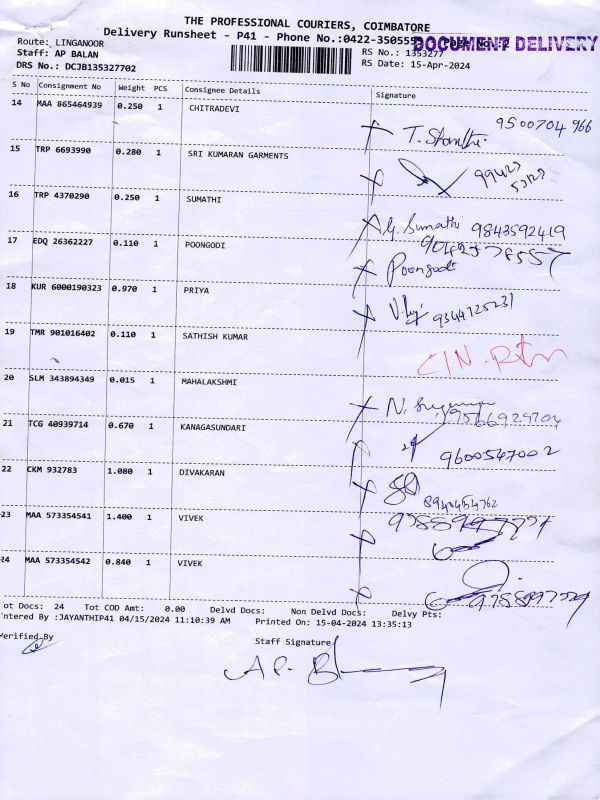 THE PROFESSIONAL COURIERS, COIMBATORE
Delivery Runsheet - P41 - Phone No.:0422-350555
DOCUMENT DELIVERY
Route: LINGANOOR
Staff: AP BALAN
DRS No.: DCJB135327702
RS No.: 1353277
RS Date: 15-Apr-2024
S No Consignment No Weight PCS Consignee Details Signature
14 MAA 865464939 0.250 1 CHITRADEVI 9500704 966
15 TRP 6693990 0.280 1 SRI KUMARAN GARMENTS
16 TRP 4370290 0.250 1 SUMATHI Sumathi 9843592419
17 EDQ 26362227 0.110 1 POONGODI Poongodi
18 KUR 6000190323 0.970 1 PRIYA 9344725231
19 TMR 901016402 0.110 1 SATHISH KUMAR
20 SLM 343894349 0.015 1 MAHALAKSHMI
21 TCG 40939714 0.670 1 KANAGASUNDARI 9600547002
22 CKM 932783 1.080 1 DIVAKARAN
23 MAA 573354541 1.400 1 VIVEK
24 MAA 573354542 0.840 1 VIVEK
ot Docs: 24 Tot COD Amt: 0.00 Delvd Docs: Non Delvd Docs: Delvy Pts:
ntered By :JAYANTHIP41 04/15/2024 11:10:39 AM Printed On: 15-04-2024 13:35:13
erified By Staff Signature